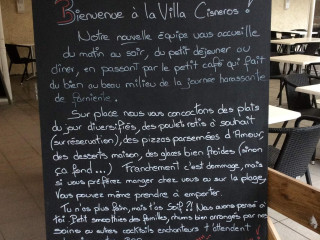 Bienvenue à la Villa Cisneros !
Notre nouvelle équipe vous accueille
du matin au soir, du petit déjeuner au
dîner, en passant par le petit café qui fait
du bien au beau milieu de la journée harassante
de farniente.
Sur place nous vous concoctons des plats
du jour diversifiés, des poulets rotis à souhait
(sur réservation), des pizzas parsemées d'Amour,
des desserts maison, des glaces bien froides (sinon
ça fond...) Franchement c'est dommage, mais
si vous préférez manger chez vous ou sur la plage,
Vous pouvez même prendre à emporter.
Tu n'as plus faim, mais t'as soif ?! Nous avons pensé à
toi. Petit smoothies des familles, rhums bien arrangés par nos
soins ou autres cocktails enchanteurs t'attendent